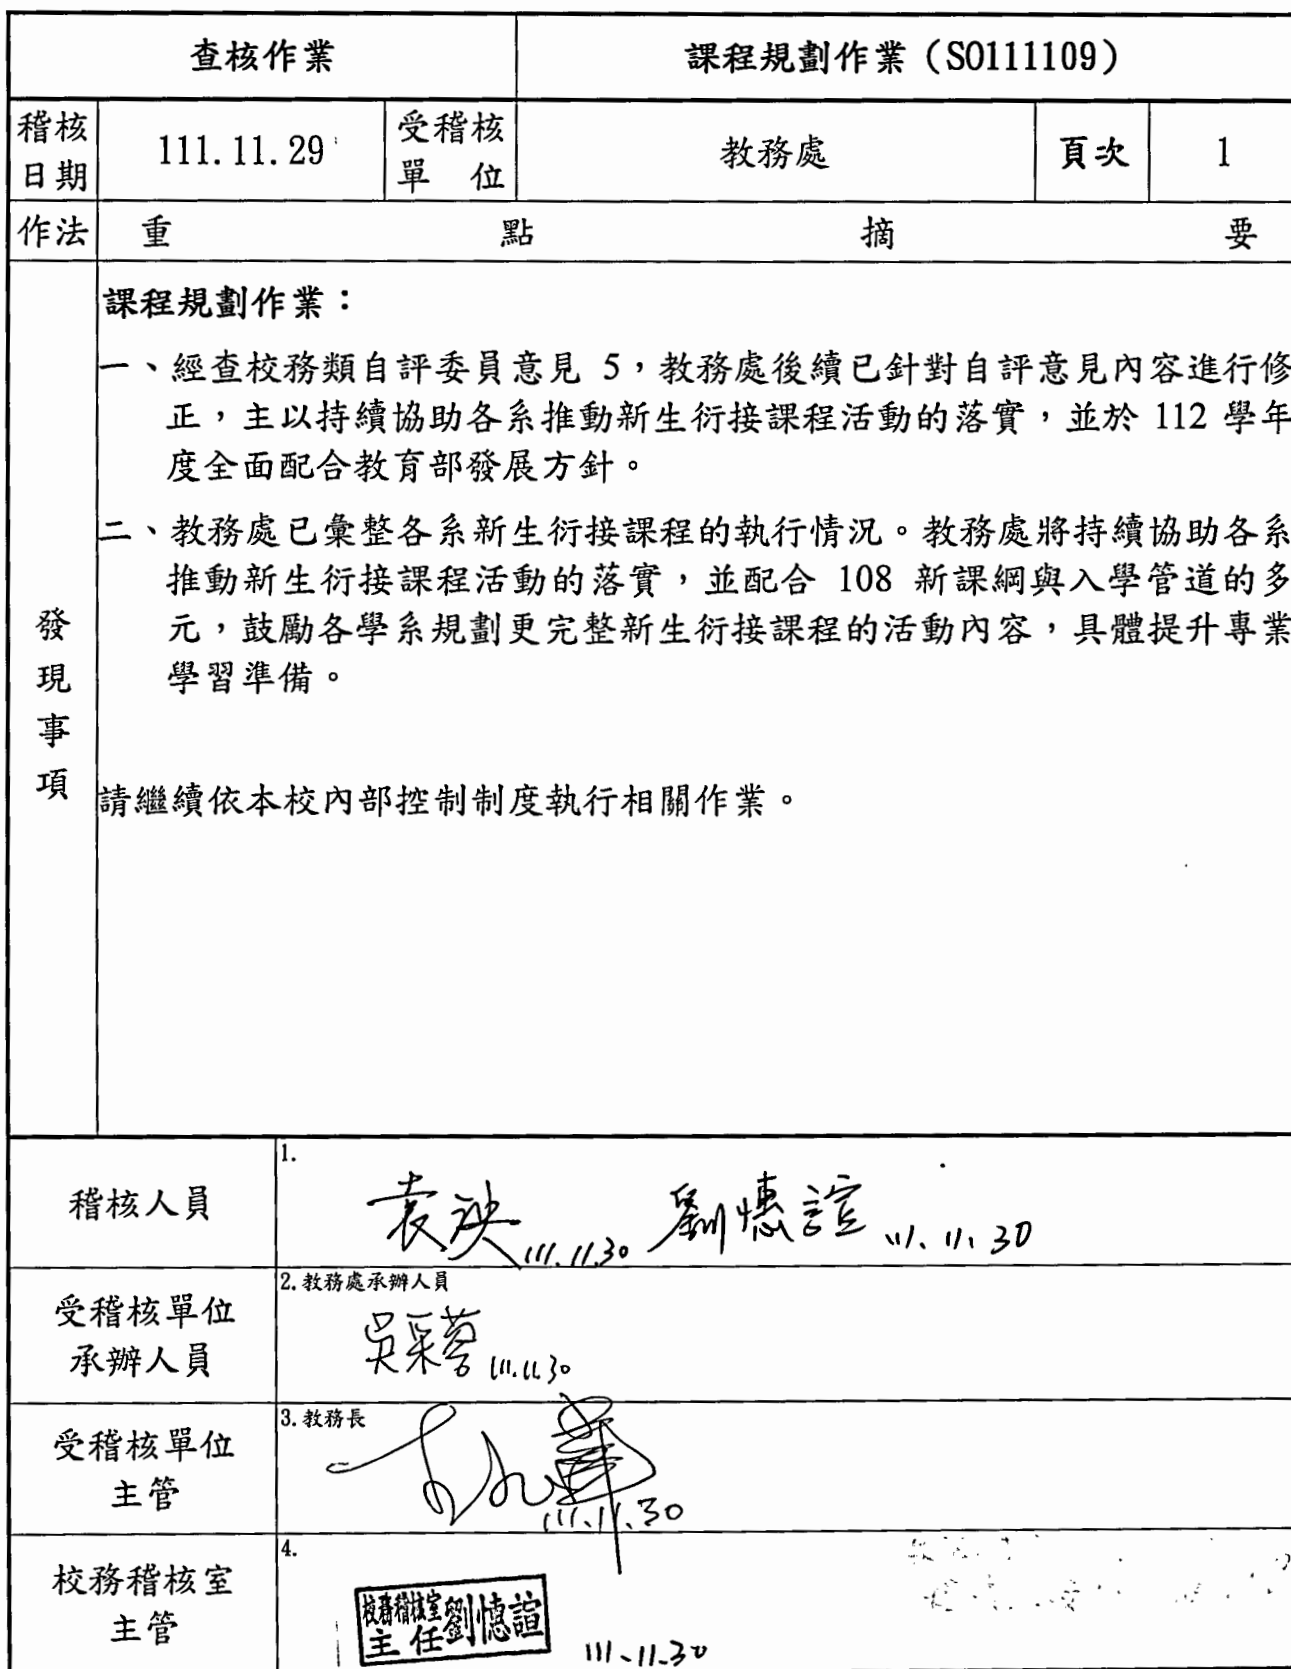 查核作業 課程規劃作業（SO111109）
稽核日期 111.11.29 受稽核單位 教務處 頁次 1
作法 重點摘要
發現事項
課程規劃作業：
一、經查校務類自評委員意見 5，教務處後續已針對自評意見內容進行修
正，主以持續協助各系推動新生銜接課程活動的落實，並於 112 學年
度全面配合教育部發展方針。
二、教務處已彙整各系新生銜接課程的執行情況。教務處將持續協助各系
推動新生銜接課程活動的落實，並配合 108 新課綱與入學管道的多
元，鼓勵各學系規劃更完整新生銜接課程的活動內容，具體提升專業
學習準備。
請繼續依本校內部控制制度執行相關作業。
稽核人員
1.
袁 111.11.30 劉憓諠 111.11.30
受稽核單位
承辦人員
2.教務處承辦人員
吳采 111.11.30
受稽核單位
主管
3.教務長
111.11.30
校務稽核室
主管
4.
校務稽核室
主任劉憓諠
111.11.30